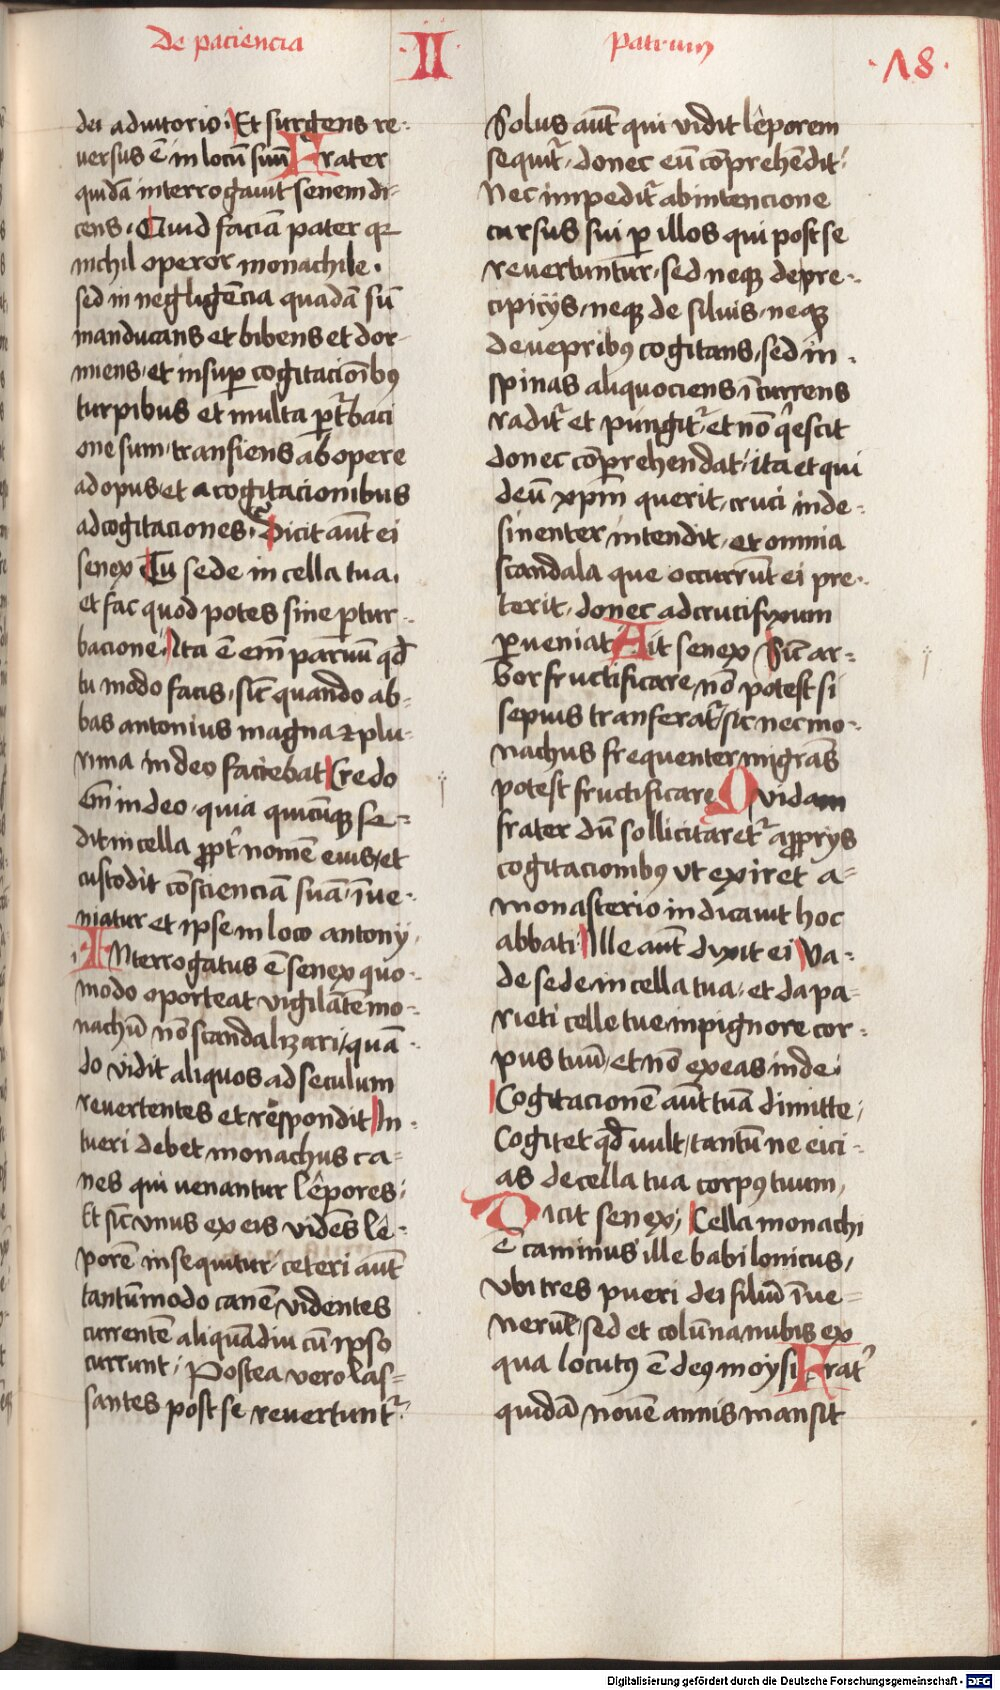 De paciencia
II
patrum
·18·
dei adiutorio. Et surgens re-
versus ē in locū suū Frater
quidā interrogavit senem di-
cens. Quid faciā pater qr
nichil operor monachile.
sed in negligēcia quadā sū
manducans et bibens et dor-
miens, et insup cogitacioībus
turpibus et multa ptͬbaci
one sum, transiens ab opere
ad opus et a cogitacionibus
ad cogitaciones. Dicit aūt ei
senex Tu sede in cella tua.
et fac quod potes sine ptur-
bacione. Ita ē em̄ parvū qd̄
tu modo facis, sic̄ quando ab-
bas antonius magna et plu-
rima in deo faciebat Credo
em̄ in deo, quia quicūqꝫ se-
dit in cella ꝓpt̓ nomē eius, et
custodit cōscienciā suā, īve-
niatur et ipse in loco antonij
INterrogatus ē senex quo-
modo oporteat vigilātē mo-
nachū nō scandalizari, quā-
do vidit aliquos ad seculum
revertentes et respondit In-
tueri debet monachus ca-
nes qui venantur lepores;
Et sic̄ unus ex eis vidēs le-
porē insequitur, ceteri aūt
tantūmodo canē videntes
currentē aliquādiu cū ipso
currunt; Postea vero las-
santes post se revertuntͬ.
Solus aūt qui vidit leporem
sequitͬ, donec eū cōprehēdit;
Nec impeditͬ ab intencione
cursus sui p illos qui post se
revertuntur, sed neqꝫ de pre-
cipicijs, neqꝫ de silvis, neqꝫ
de vepribꝰ cogitans, sed in
spinas aliquociens īcurrens
raditͬ et pungitͬ, et nō qͥescit
donec cōprehendat; ita et qui
deū xpm̄ querit, cruci inde-
sinenter intendit, et omnia
scandala que occurrūt ei pre-
terit, donec ad crucifixum
perveniat Ait senex Sic̄ ar-
bor fructificare nō potest si
sepius transferatͬ, sic nec mo-
nachus frequenter migrās
potest fructificare Quidam
frater dū sollicitaretͬ a ꝓprijs
cogitacionibꝰ ut exiret a-
monasterio indicavit hoc
abbati Ille aūt dixit ei Va-
de sede in cella tua, et da pa-
rieti celle tue in pignore cor-
pus tuū, et nō exeas inde.
Cogitacionē aūt tuā dimitte,
Cogitet qd̄ vult, tantū ne eici-
as de cella tua corpꝰ tuum,
Dicit senex, Cella monachi
ē caminus ille babilonicus,
ubi tres pueri dei filiū īve-
nerūt, sed et colūna nubis ex
qua locutꝰ ē deꝰ moysi Frat̓
quidā novē annis mansit
Digitalisierung gefördert durch die Deutsche Forschungsgemeinschaft - DFG